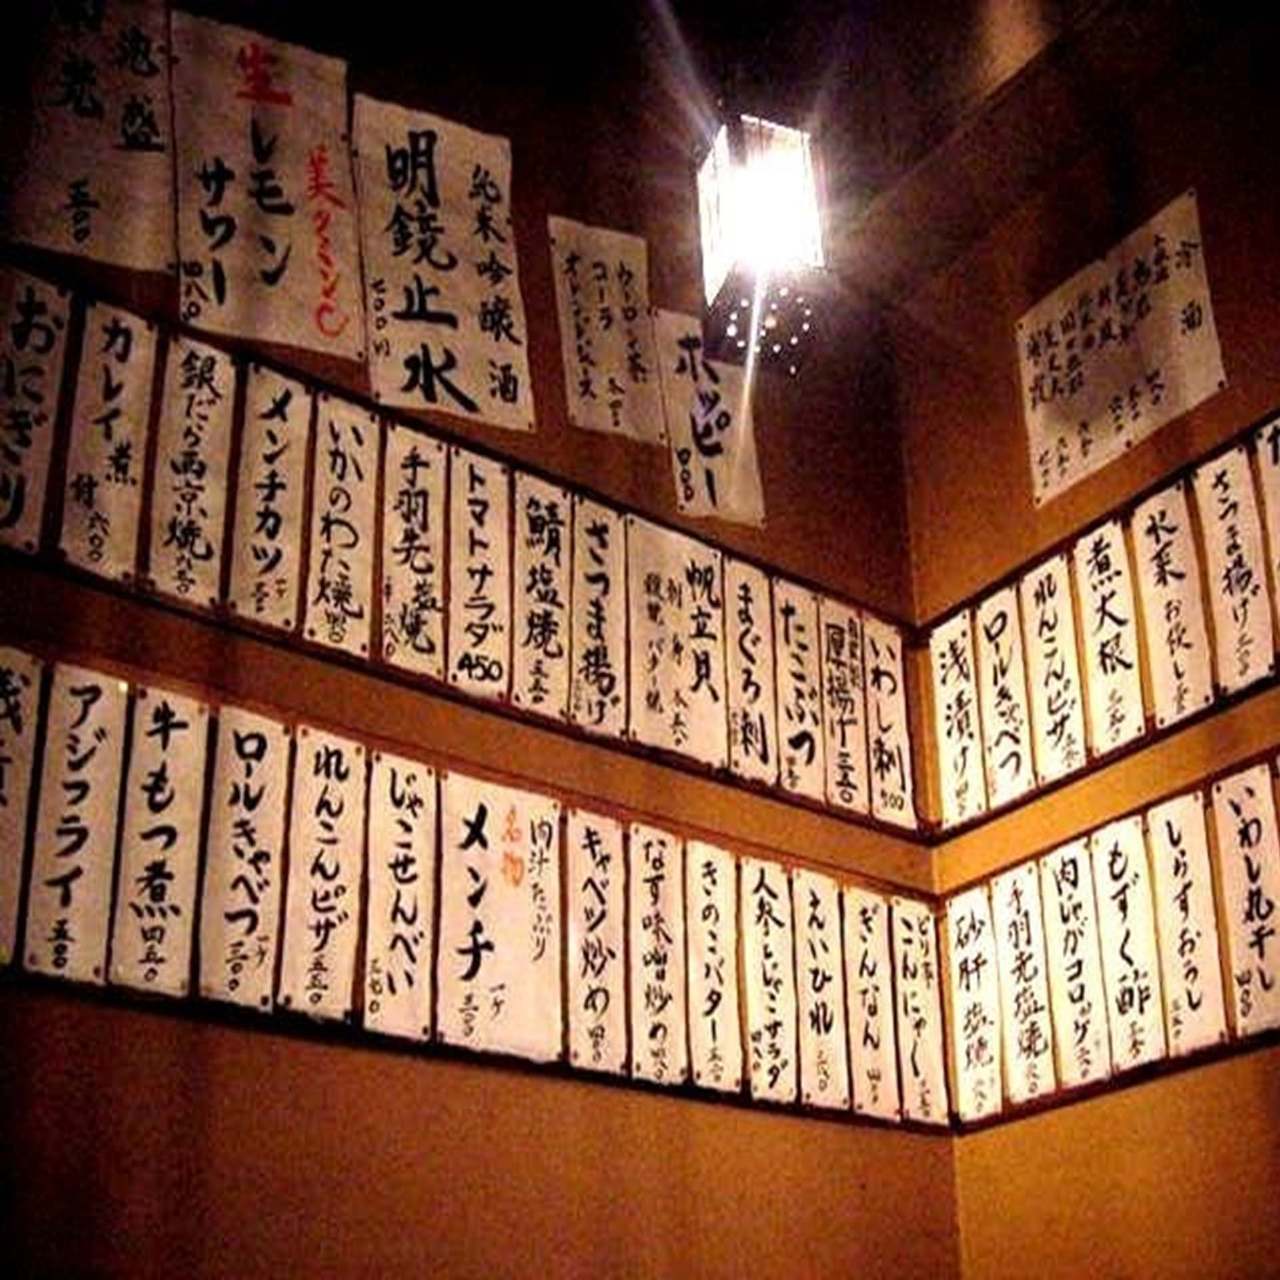 泡盛
五〇〇
生レモン
サワー
美タミンC
四八〇
純米吟醸酒
明鏡止水
ウーロン茶
コーラ
オレンジジュース
ホッピー
四〇〇
冷酒
おにぎり
カレイ煮
六〇〇
銀だら西京焼
メンチカツ
いかのわた焼
手羽先塩焼
トマトサラダ
450
鯖塩焼
五五〇
さつま揚げ
帆立貝
刺身
まぐろ刺
たこぶつ
自家製
厚揚げ
三五〇
いわし刺
500
浅漬け
ロールきゃべつ
れんこんピザ
煮大根
水菜お浸し
さつま揚げ
アジフライ
五〇〇
牛もつ煮
四五〇
ロールきゃべつ
一ケ
三〇〇
れんこんピザ
五五〇
じゃこせんべい
名物
肉汁たっぷり
メンチ
一ケ
キャベツ炒め
四五〇
なす味噌炒め
きのこバター
人参とじゃこサラダ
えいひれ
ぎんなん
ピリ辛
こんにゃく
砂肝塩焼
手羽先塩焼
肉じゃがコロッケ
もずく酢
しらすおろし
いわし丸干し